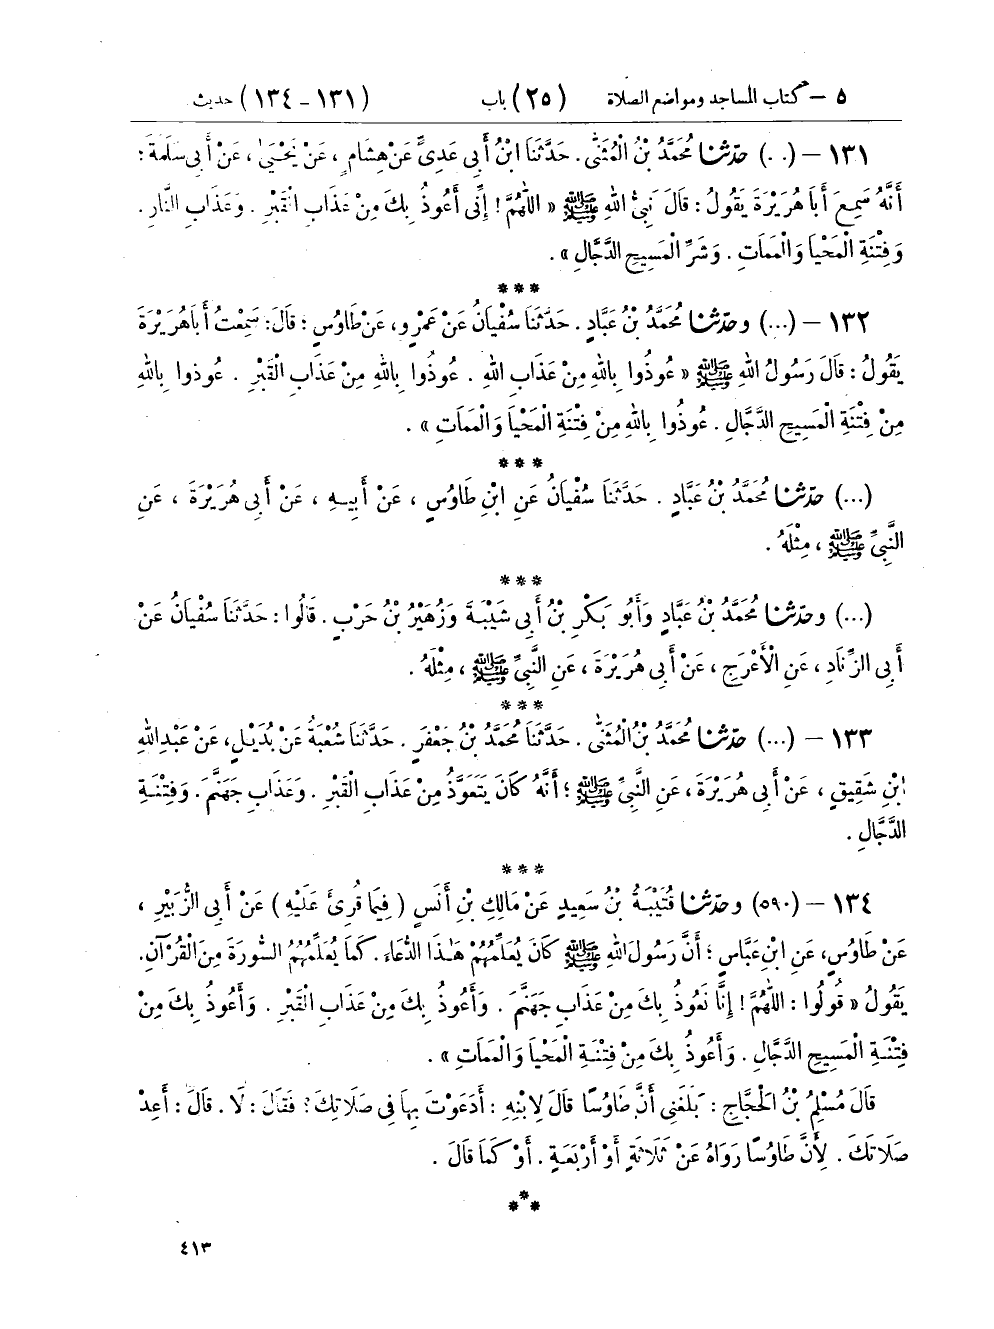 ٥ – كتاب المساجد ومواضع الصلاة (٢٥) باب (١٣١ – ١٣٤) حديث
١٣١ – (. .) حَدَّثَنَا مُحَمَّدُ بْنُ الْمُثَنَّى. حَدَّثَنَا ابْنُ أَبِي عَدِيٍّ عَنْ هِشَامٍ، عَنْ يَحْيَىٰ، عَنْ أَبِي سَلَمَةَ؛
أَنَّهُ سَمِعَ أَبَا هُرَيْرَةَ يَقُولُ: قَالَ نَبِيُّ اللهِ ﷺ « اللَّهُمَّ! إِنِّي أَعُوذُ بِكَ مِنْ عَذَابِ الْقَبْرِ. وَعَذَابِ النَّارِ.
وَفِتْنَةِ الْمَحْيَا وَالْمَمَاتِ. وَشَرِّ الْمَسِيحِ الدَّجَّالِ ».
***
١٣٢ – (...) وحَدَّثَنَا مُحَمَّدُ بْنُ عَبَّادٍ. حَدَّثَنَا سُفْيَانُ عَنْ عَمْرٍو، عَنْ طَاوُسٍ؛ قَالَ: سَمِعْتُ أَبَا هُرَيْرَةَ
يَقُولُ: قَالَ رَسُولُ اللهِ ﷺ « عُوذُوا بِاللهِ مِنْ عَذَابِ اللهِ. عُوذُوا بِاللهِ مِنْ عَذَابِ الْقَبْرِ. عُوذوا بِاللهِ
مِنْ فِتْنَةِ الْمَسِيحِ الدَّجَّالِ. عُوذُوا بِاللهِ مِنْ فِتْنَةِ الْمَحْيَا وَالْمَمَاتِ ».
***
(...) حَدَّثَنَا مُحَمَّدُ بْنُ عَبَّادٍ. حَدَّثَنَا سُفْيَانُ عَنِ ابْنِ طَاوُسٍ، عَنْ أَبِيهِ، عَنْ أَبِي هُرَيْرَةَ، عَنِ
النَّبِيِّ ﷺ، مِثْلَهُ.
***
(...) وحَدَّثَنَا مُحَمَّدُ بْنُ عَبَّادٍ وَأَبُو بَكْرِ بْنُ أَبِي شَيْبَةَ وَزُهَيْرُ بْنُ حَرْبٍ. قَالُوا: حَدَّثَنَا سُفْيَانُ عَنْ
أَبِي الزِّنَادِ، عَنِ الْأَعْرَجِ، عَنْ أَبِي هُرَيْرَةَ، عَنِ النَّبِيِّ ﷺ، مِثْلَهُ.
***
١٣٣ – (...) حَدَّثَنَا مُحَمَّدُ بْنُ الْمُثَنَّى. حَدَّثَنَا مُحَمَّدُ بْنُ جَعْفَرٍ. حَدَّثَنَا شُعْبَةُ عَنْ بُدَيْلٍ، عَنْ عَبْدِ اللهِ
ابْنِ شَقِيقٍ، عَنْ أَبِي هُرَيْرَةَ، عَنِ النَّبِيِّ ﷺ؛ أَنَّهُ كَانَ يَتَعَوَّذُ مِنْ عَذَابِ الْقَبْرِ. وَعَذَابِ جَهَنَّمَ. وَفِتْنَةِ
الدَّجَّالِ.
***
١٣٤ – (٥٩٠) وحَدَّثَنَا قُتَيْبَةُ بْنُ سَعِيدٍ عَنْ مَالِكِ بْنِ أَنَسٍ ( فِيمَا قُرِئَ عَلَيْهِ ) عَنْ أَبِي الزُّبَيْرِ،
عَنْ طَاوُسٍ، عَنِ ابْنِ عَبَّاسٍ؛ أَنَّ رَسُولَ اللهِ ﷺ كَانَ يُعَلِّمُهُمْ هَٰذَا الدُّعَاءَ. كَمَا يُعَلِّمُهُمُ السُّورَةَ مِنَ الْقُرْآنِ.
يَقُولُ « قُولُوا: اللَّهُمَّ! إِنَّا نَعُوذُ بِكَ مِنْ عَذَابِ جَهَنَّمَ. وَأَعُوذُ بِكَ مِنْ عَذَابِ الْقَبْرِ. وَأَعُوذُ بِكَ مِنْ
فِتْنَةِ الْمَسِيحِ الدَّجَّالِ. وَأَعُوذُ بِكَ مِنْ فِتْنَةِ الْمَحْيَا وَالْمَمَاتِ ».
قَالَ مُسْلِمُ بْنُ الْحَجَّاجِ: بَلَغَنِي أَنَّ طَاوُسًا قَالَ لِابْنِهِ: أَدَعَوْتَ بِهَا فِي صَلَاتِكَ؟ فَقَالَ: لَا. قَالَ: أَعِدْ
صَلَاتَكَ. لِأَنَّ طَاوُسًا رَوَاهُ عَنْ ثَلَاثَةٍ أَوْ أَرْبَعَةٍ. أَوْ كَمَا قَالَ.
***
٤١٣